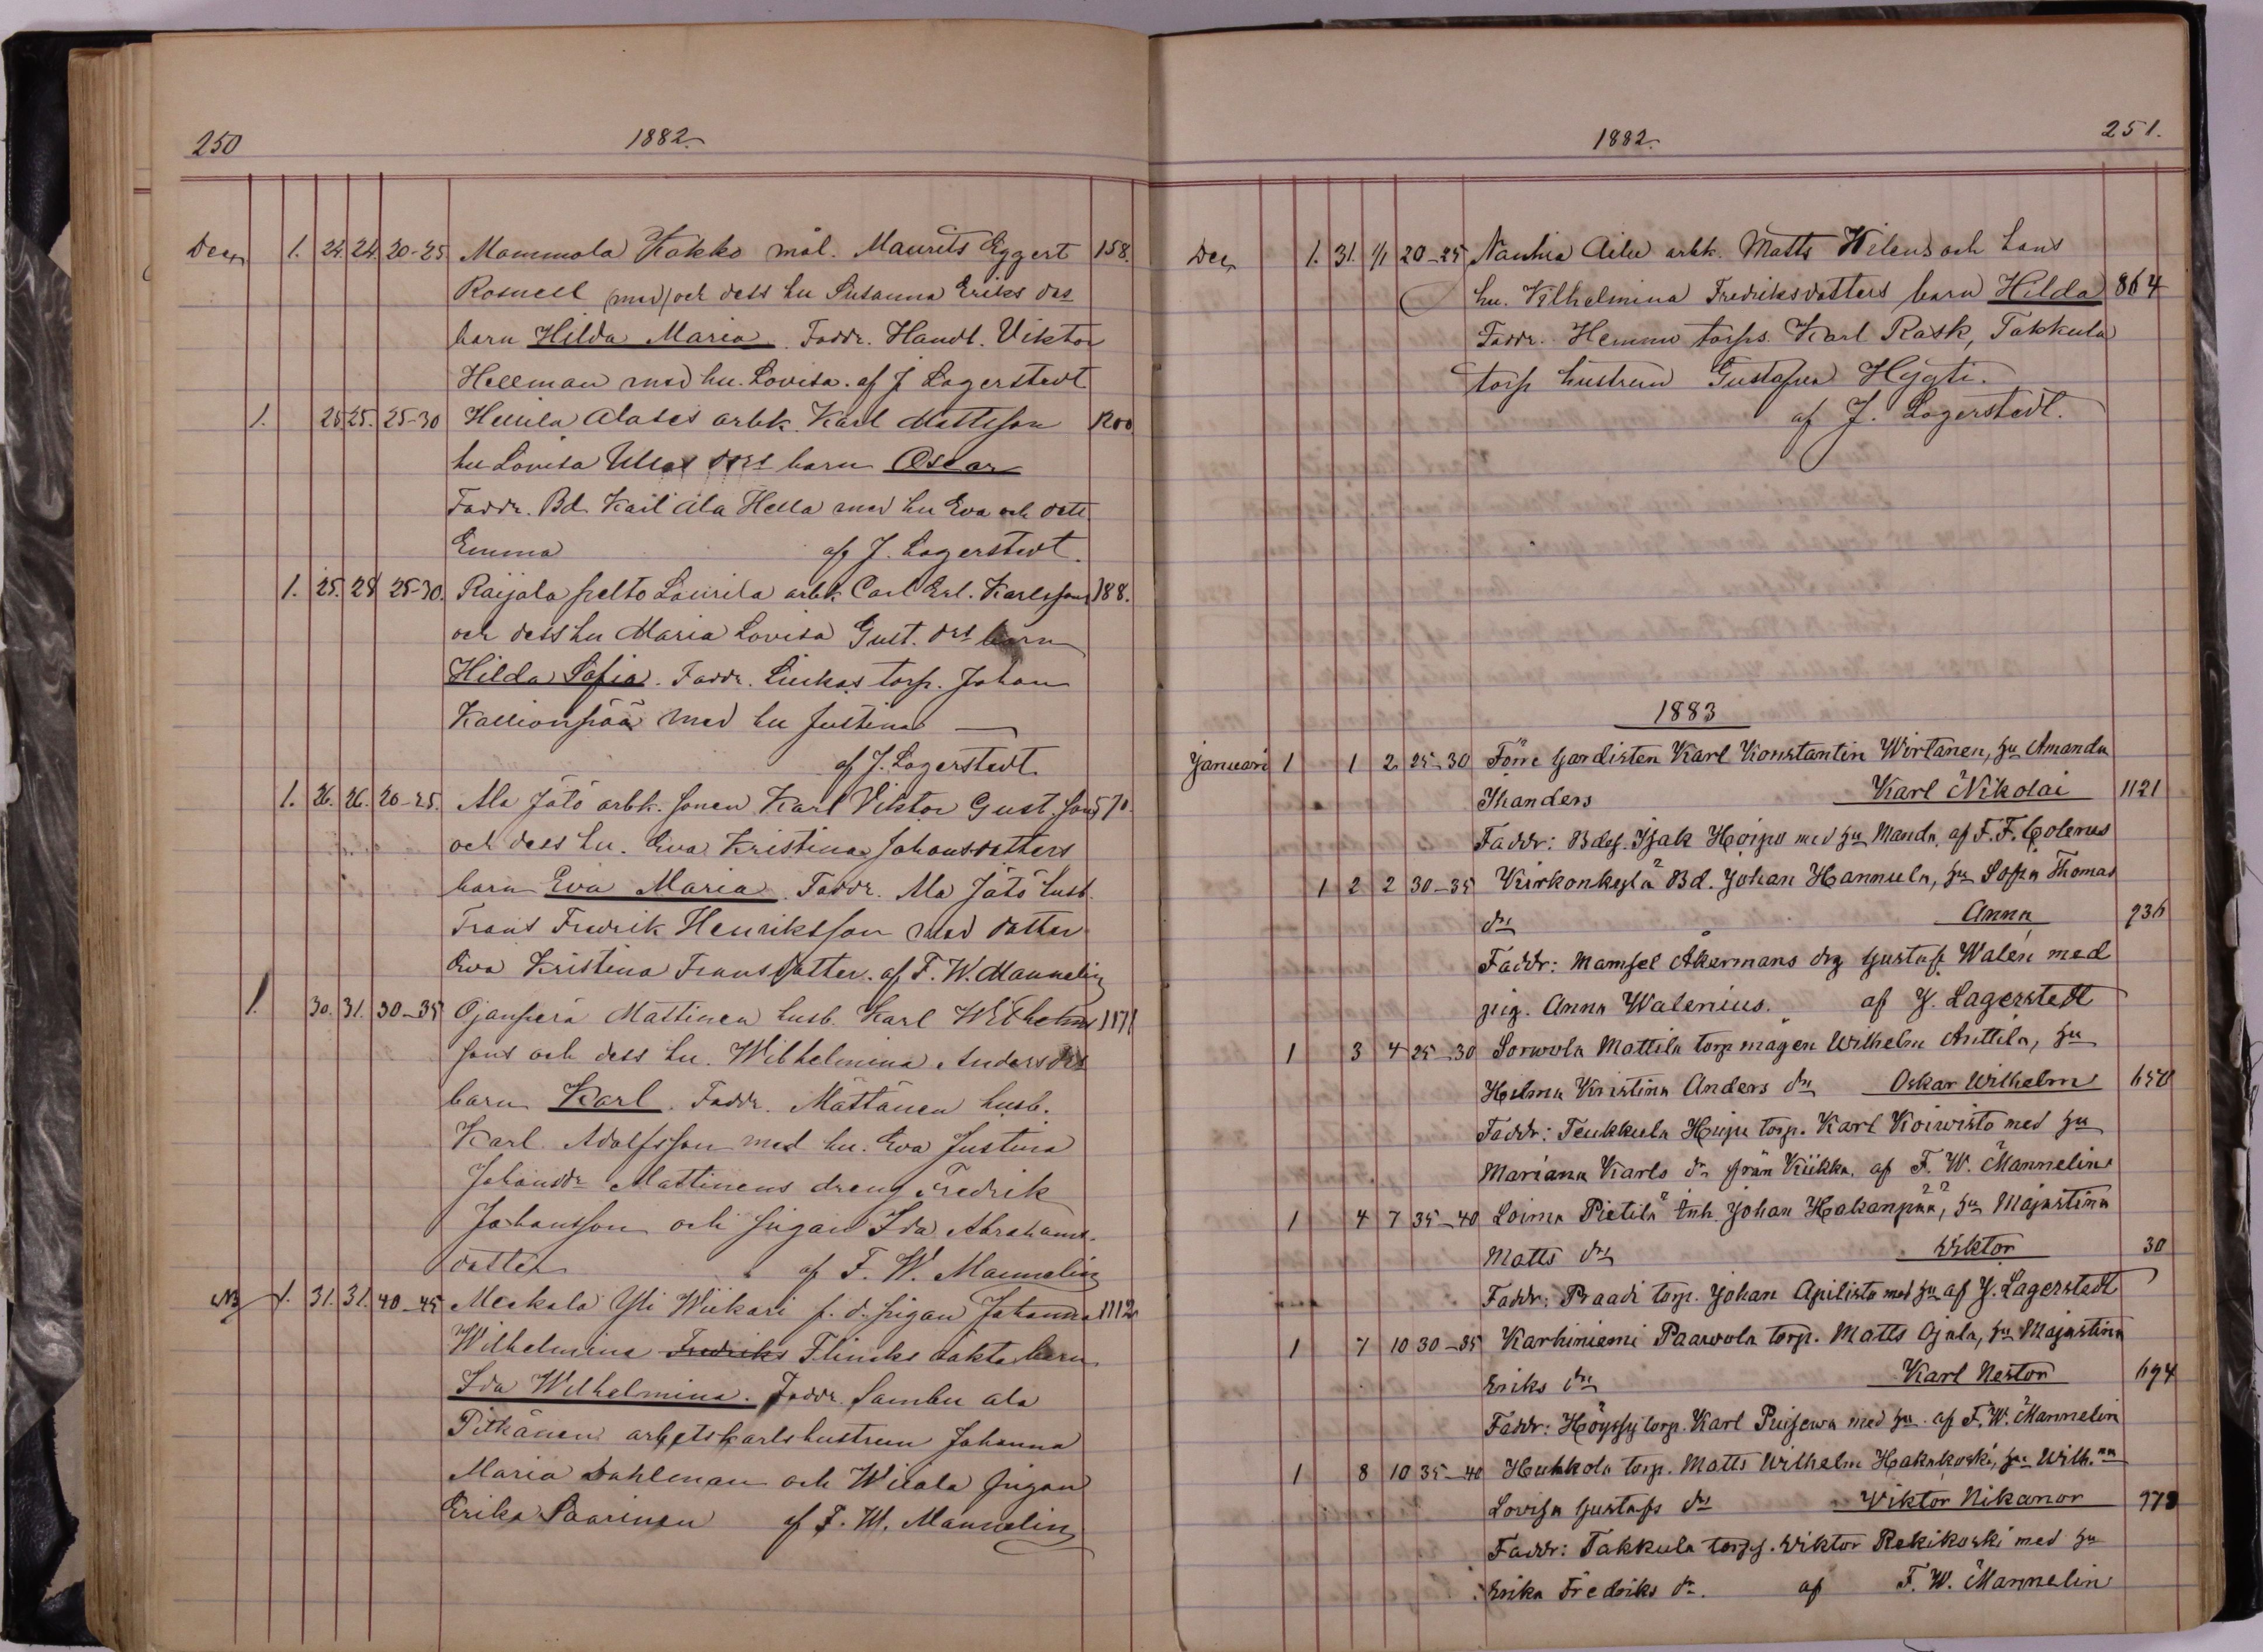 250
1882.
Dec. 1. 24. 24. 20-25 Mommola Kokko mål. Maurits Eggert 158.
Rosnell (med) och dess hu Susanna Eriks drs
barn Hilda Maria. Faddr. Handl. Viktor
Hellman med hu. Lovisa. af J Lagerstedt
1. 25 25. 25-30 arbk. Karl Mattsson 1200
hu Lovisa drs barn Oscar
Faddr. Bd. Karl Ala Hella med hu Eva och dott
Emma af J. Lagerstedt.
1. 25. 28 25-30. Raijala pelto Laurila arbk. Carl Erl. Karlsson 188.
och dess hu Maria Lovisa Gust. drs barn
Hilda Sofia. Faddr. torp. Johan
Kallionpää med hu Justina —
af J. Lagerstedt.
1. 26. 26. 20-25. Ala Jätö arbk. sonen Karl Viktor Gust. sons 570.
och dess hu. Eva Kristina Johansdotters
barn Eva Maria. Faddr. Ala Jätö husb.
Frans Fredrik Henriksson med dotter
Eva Kristina Fransdotter. af F. W. Mannelin
1. 30. 31. 30-35 Ojanperä Mattinen husb. Karl Wilhelms 1171
sons och dess hu. Wilhelmina Anders drs
barn Karl. Faddr. Mättänen husb.
Karl Adolfsson med hu. Eva Justina
Johansdr Mattinens dreng Fredrik
Johansson och pigan Ida Abrahams-
dotter af F. W. Mannelin
NB 1. 31. 31. 40-45 Meskala Yli Wiikari f. d. pigan Johanna 1112
Wilhelmina Fredriks Flincks oäkta barn
Ida Wilhelmina. Faddr. Sambu ala
Pitkänen arbetskarlshustrun Johanna
Maria Dahlman och pigan
Erika Saarinen af F. W. Mannelin
1882.
251.
Dec. 1. 31. 1/1 20-25 arbk. Matts Wilens och hans
hu. Vilhelmina Fredriksdotters barn Hilda 864
Faddr. Hemmo torps. Karl Rask, Takkula
torp hustrun Gustafva
af J. Lagerstedt.
1883
Januari 1 1 2 25-30 Förre Gardisten Karl Konstantin Wirtanen, hu Amanda
Ihanders Karl Nikolai 1121
Faddr: Bdes. Isak Hoipo med hu Manda. af F. F. Colerus
1 2 2 30-35 Kirkonkylä Bd. Johan Hannula, hu Sofia Thomas
drs Anna 936
Faddr: Mamsel Åkermans drg Gustaf Walén med
pig. Anna Walenius. af J. Lagerstedt
1 3 4 25-30 Sorwola Mattila torp mågen Wilhelm Anttila, hu
Helma Kristina Anders drs Oskar Wilhelm 650
Faddr: Teukkula Huju torp. Karl Koiwisto med hu
Mariana Karls dr från Kiikka. af F. W. Mannelin
1 4 7 35-40 Loima Pietilä inh. Johan Hakanpää, hu Majastina
Matts drs Wiktor 30
Faddr: Praadi torp. Johan Apilisto med hu af J. Lagerstedt
1 7 10 30-35 Karhiniemi Paawola torp. Matts Ojala, hu Majastina
Eriks drs Karl Nestor 694
Faddr: Höyssy torp. Karl med hu. af F. W. Mannelin
1 8 10 35-40 Huhkola torp. Matts Wilhelm Hakakoski, hu Wilh.na
Lovisa Gustafs drs Wiktor Nikanor 979
Faddr: Takkula torps. Wiktor Rekikoski med hu
Erika Fredriks dr. af F. W. Mannelin